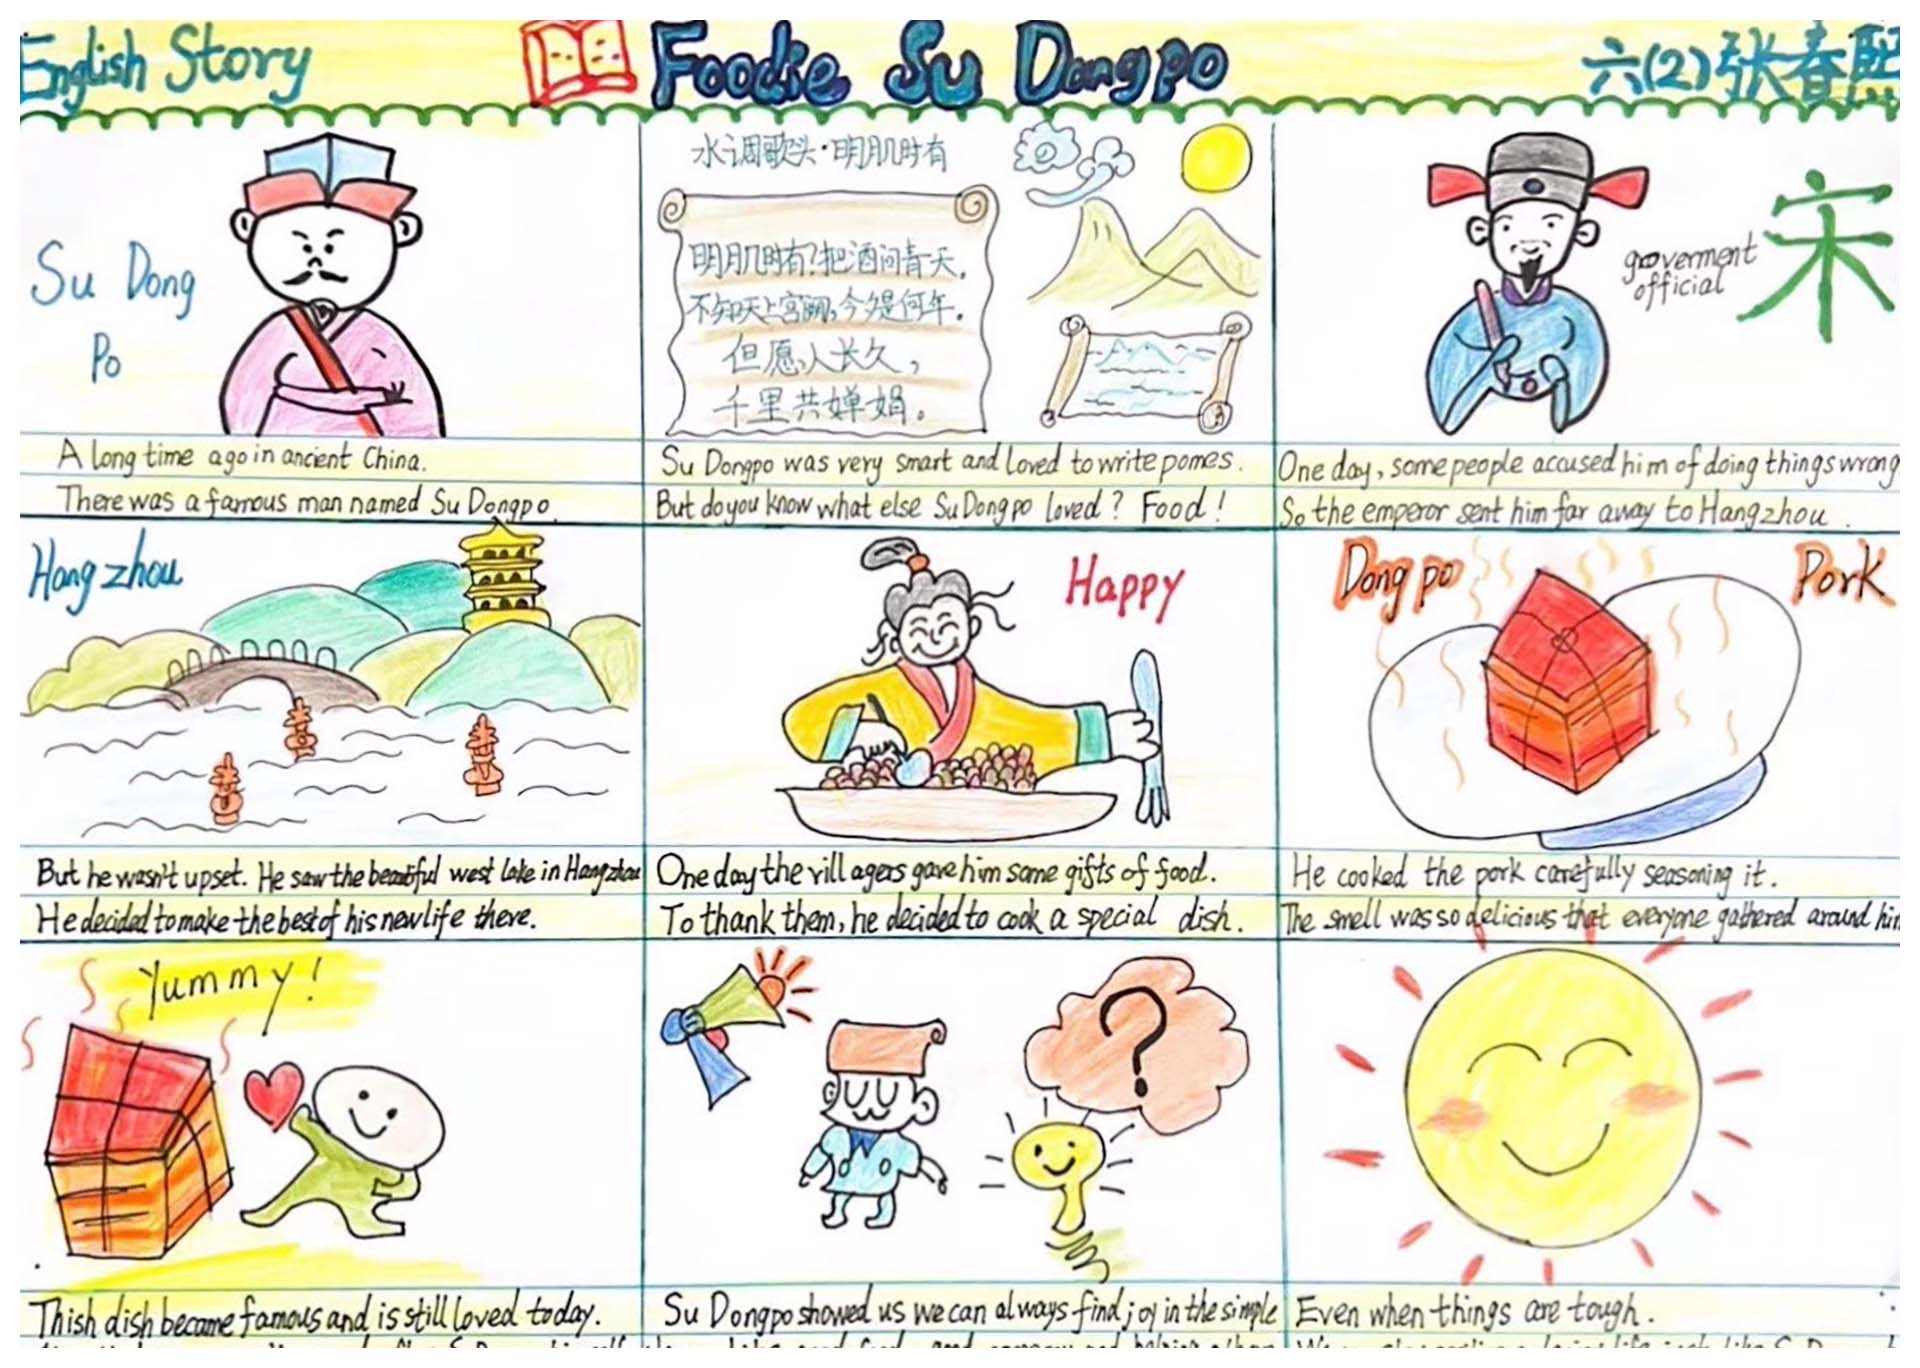 English Story
Foodie Su Dongpo
六(2)张春熙
Su Dong
Po
水调歌头·明月几时有
明月几时有?把酒问青天。
不知天上宫阙,今夕是何年。
但愿人长久,
千里共婵娟。
goverment
official
宋
A long time ago in ancient China.
There was a famous man named Su Dongpo
Su Dongpo was very smart and loved to write pomes.
But do you know what else Su Dongpo loved? Food!
One day, some people accused him of doing things wrong
So the emperor sent him far away to Hangzhou.
Hangzhou
Happy
Dongpo Pork
But he wasn't upset. He saw the beautiful west lake in Hangzhou
He decided to make the best of his new life there.
One day the villagers gave him some gifts of food.
To thank them, he decided to cook a special dish.
He cooked the pork carefully seasoning it.
The smell was so delicious that everyone gathered around him
Yummy!
?
Thish dish became famous and is still loved today.
Su Dongpo showed us we can always find joy in the simple
Even when things are tough.